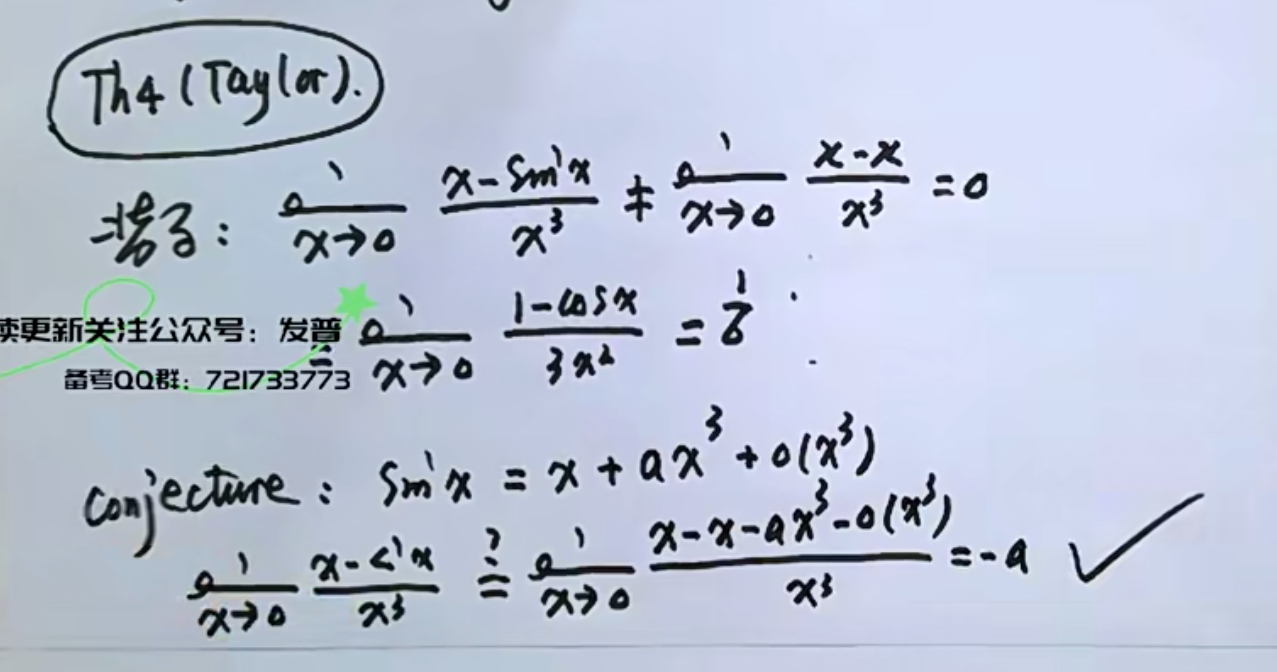 Th4 (Taylor).
lim x→0 (x - sin x)/x³ ≠ lim x→0 (x - x)/x³ = 0
= lim x→0 (1 - cos x)/3x² = 1/6
续更新关注公众号：发普
备考QQ群：721733773
conjecture: sin x = x + ax³ + o(x³)
lim x→0 (x - sin x)/x³ ?= lim x→0 (x - x - ax³ - o(x³))/x³ = -a ✓